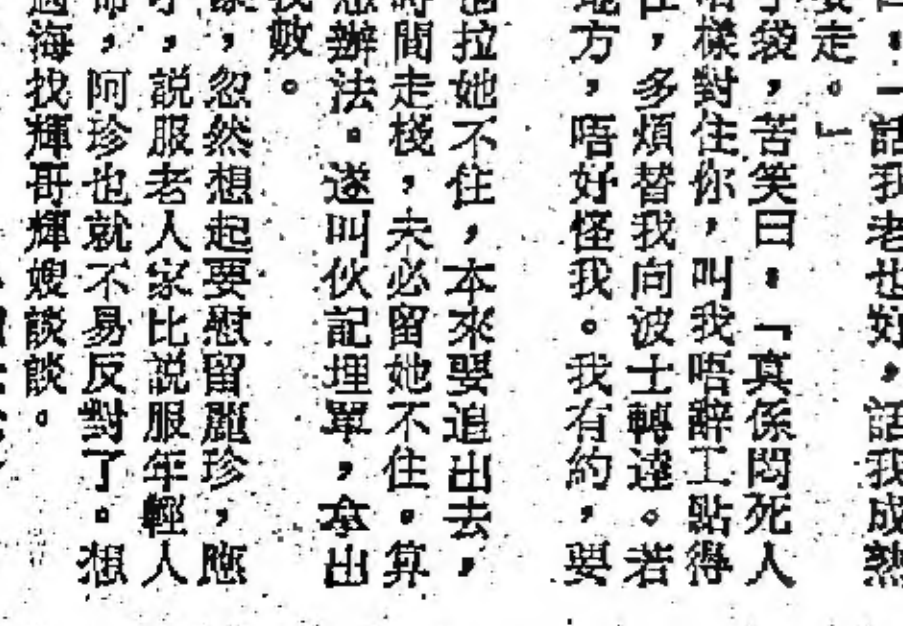 曰：一話我老也好，話我成熟
要走。」
子袋，苦笑曰：「真係悶死人
樣對住你，叫我唔辭工點得
住，多煩替我向波士轉達。若
地方，唔好怪我。我有約，要
拉她不住，本來要追出去，
時間走棧，未必留她不住。算
想辦法。遂叫伙記埋單，拿出
我數。
，忽然想起要慰留麗珍，應
，說服老人家比說服年輕人
命，阿珍也就不易反對了。想
過海找輝哥輝嫂談談。